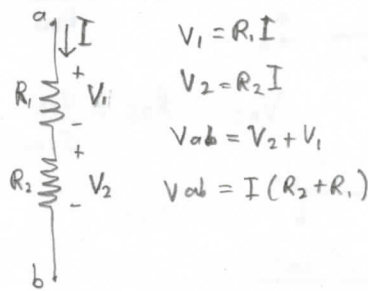 a
I
+
R₁
V₁
-
+
R₂
V₂
-
b
V₁ = R₁I
V₂ = R₂I
Vab = V₂ + V₁
Vab = I (R₂ + R₁)